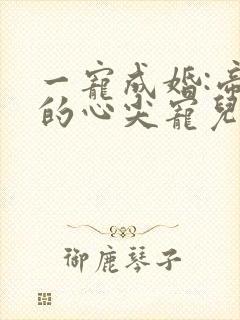 一寵成婚:帝
的心尖寵兒
御鹿琴子